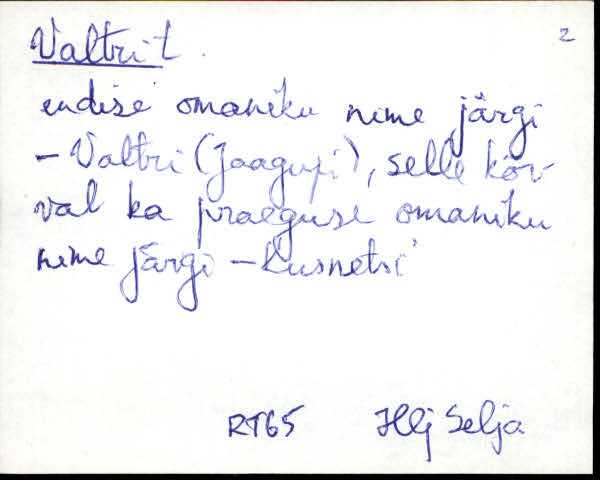 Valtri t. 2
endise omaniku nime järgi
– Valtri (Jaagupi), selle kõr-
val ka praeguse omaniku
nime järgi – Kusnetsi
RT65 Hlj Selja